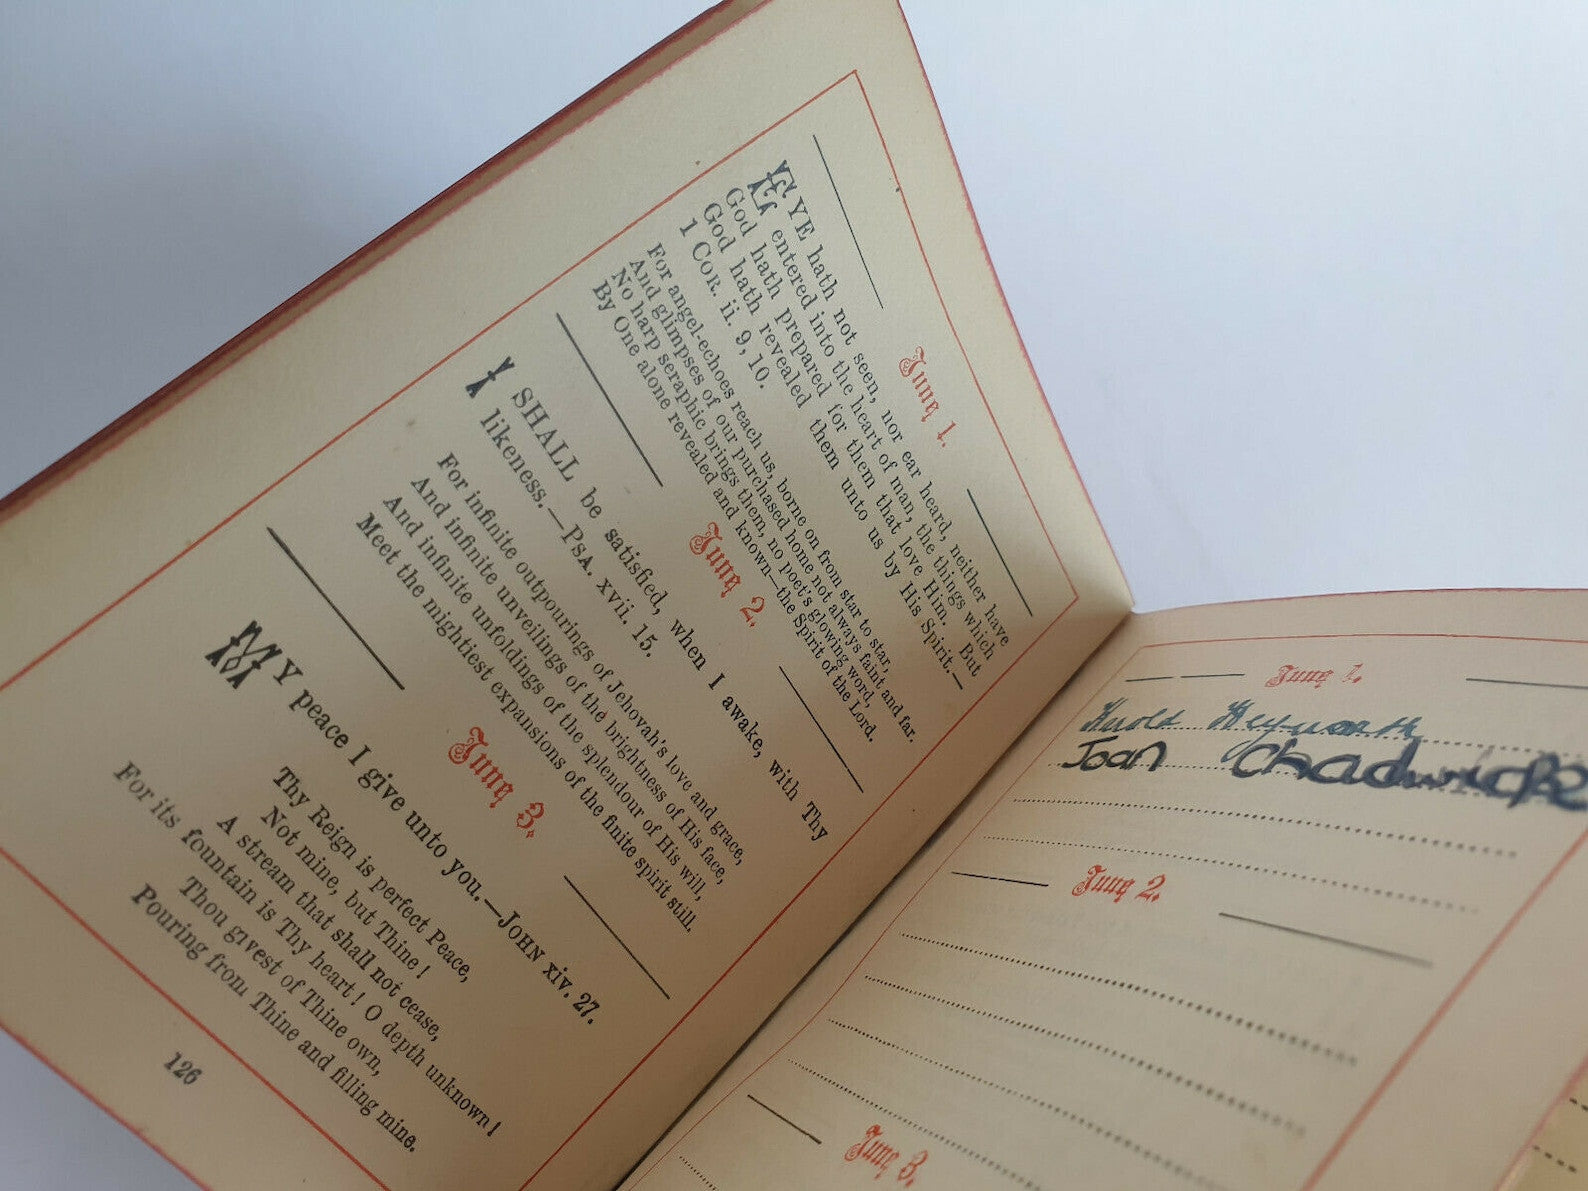 June 1.
EYE hath not seen, nor ear heard, neither have
entered into the heart of man, the things which
God hath prepared for them that love Him. But
God hath revealed them unto us by His Spirit.—
1 COR. ii. 9, 10.
For angel-echoes reach us, borne on from star to star,
And glimpses of our purchased home not always faint and far.
No harp seraphic brings them, no poet's glowing word,
By One alone revealed and known—the Spirit of the Lord.
June 2.
I SHALL be satisfied, when I awake, with Thy
likeness.—PSA. xvii. 15.
For infinite outpourings of Jehovah's love and grace,
And infinite unveilings of the brightness of His face,
And infinite unfoldings of the splendour of His will,
Meet the mightiest expansions of the finite spirit still.
June 3.
MY peace I give unto you.—JOHN xiv. 27.
Thy Reign is perfect Peace,
Not mine, but Thine!
A stream that shall not cease,
For its fountain is Thy heart! O depth unknown!
Thou givest of Thine own,
Pouring from Thine and filling mine.
126
June 1.
Harold Heyworth
Joan Chadwick
June 2.
June 3.